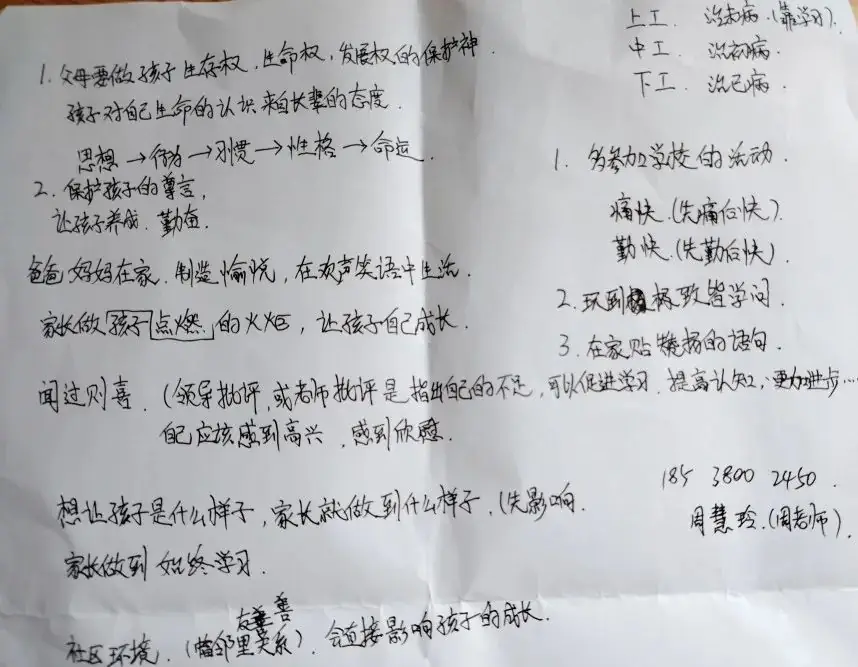 上工. 治未病.(靠学习).
中工. 治初病.
下工. 治已病.
1. 父母要做孩子生存权.生命权,发展权的保护神.
孩子对自己生命的认识来自长辈的态度.
思想→行为→习惯→性格→命运.
2. 保护孩子的尊言,
让孩子养成.勤奋.
爸爸妈妈在家.制造愉悦,在欢声笑语中生活.
家长做孩子点燃的火炬,让孩子自己成长.
1. 多参加学校的活动.
痛快.(先痛后快).
勤快.(先勤后快).
2. 玩到极致皆学问.
3. 在家贴表扬的语句.
闻过则喜.(领导批评,或老师批评是指出自己的不足,可以促进学习.提高认知,更加进步…
自己应该感到高兴,感到欣慰.
185 3800 2450.
周慧玲.(周老师).
想让孩子是什么样子,家长就做到什么样子,(先影响.
家长做到始终学习.
友善
社区环境.(邻里关系).会直接影响孩子的成长.